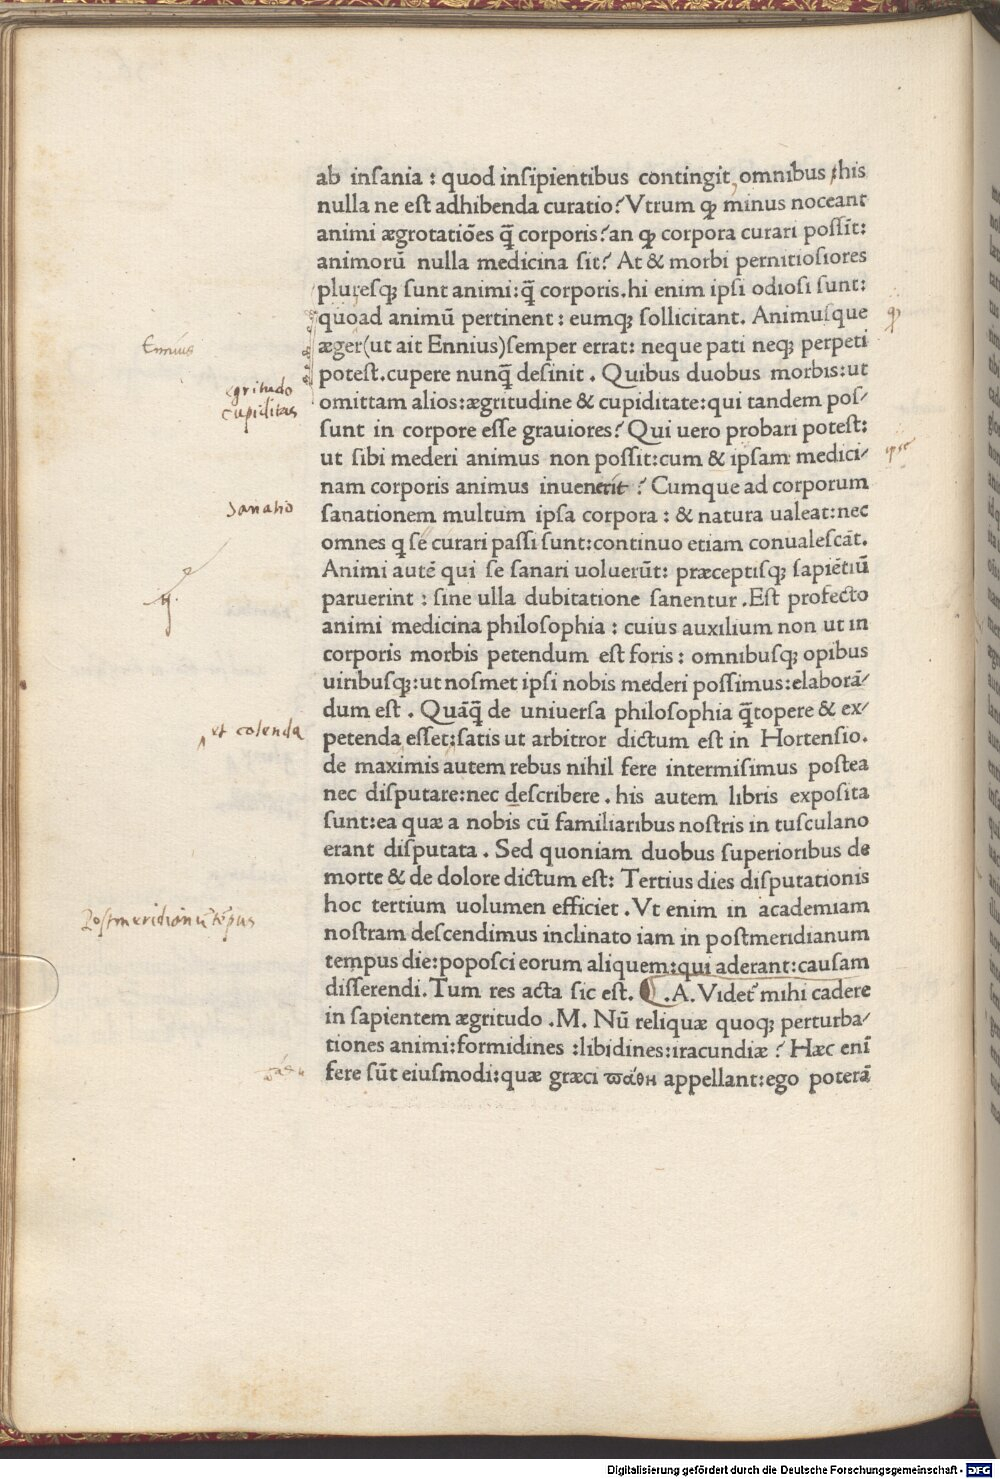 ab inſania : quod inſipientibus contingit, omnibus his
nulla ne eſt adhibenda curatio? Vtrum ꝙ minus noceant
animi ægrotatiões q̃ corporis? an ꝙ corpora curari poſſīt:
animorū nulla medicina ſit? At & morbi pernitioſiores
pluresq; ſunt animi: q̃ corporis. hi enim ipſi odioſi ſunt:
quoad animū pertinent : eumq; ſollicitant. Animuſque
ꝙ
æger (ut ait Ennius) ſemper errat: neque pati neq; perpeti
Ennius
poteſt. cupere nunq̃ deſinit . Quibus duobus morbis: ut
egritudo
omittam alios: ægritudine & cupiditate: qui tandem poſ⸗
cupiditas
ſunt in corpore eſſe grauiores? Qui uero probari poteſt:
ut ſibi mederi animus non poſſit: cum & ipſam medici⸗
ipse
nam corporis animus inuenerit ? Cumque ad corporum
ſanationem multum ipſa corpora : & natura ualeat: nec
Sanatio
omnes q ſe curari paſſi ſunt: continuo etiam conualeſcāt.
Animi autē qui ſe ſanari uoluerūt: præceptiſq; ſapiētiū
paruerint : ſine ulla dubitatione ſanentur . Eſt profecto
animi medicina philoſophia : cuius auxilium non ut in
corporis morbis petendum eſt foris : omnibuſq; opibus
uiribuſq;: ut noſmet ipſi nobis mederi poſſimus: elaborā⸗
dum eſt . Quāq̃ de uniuerſa philoſophia q̃topere & ex⸗
et colenda
petenda eſſet: ſatis ut arbitror dictum eſt in Hortenſio.
de maximis autem rebus nihil fere intermiſimus poſtea
nec diſputare: nec deſcribere . his autem libris expoſita
ſunt: ea quæ a nobis cū familiaribus noſtris in tuſculano
erant diſputata . Sed quoniam duobus ſuperioribus de
morte & de dolore dictum eſt: Tertius dies diſputationis
hoc tertium uolumen efficiet . Vt enim in academiam
Postmeridianū tēpus
noſtram deſcendimus inclinato iam in poſtmeridianum
tempus die: popoſci eorum aliquem: qui aderant: cauſam
diſſerendi. Tum res acta ſic eſt. .A. Videt᷑ mihi cadere
in ſapientem ægritudo . M. Nū reliquæ quoq; perturba⸗
tiones animi: formidines : libidines: iracundiæ ? Hæc enī
fere ſūt eiuſmodi: quæ græci ϖάθη appellant: ego poterā
ϖάθη
Digitalisierung gefördert durch die Deutsche Forschungsgemeinschaft - DFG